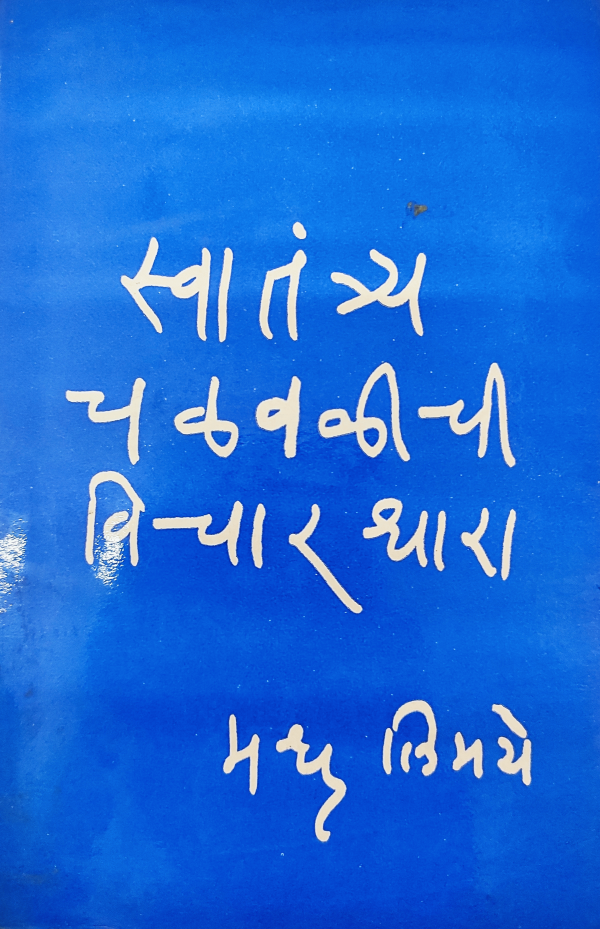 स्वातंत्र्य
चळवळीची
विचारधारा
मधु लिमये